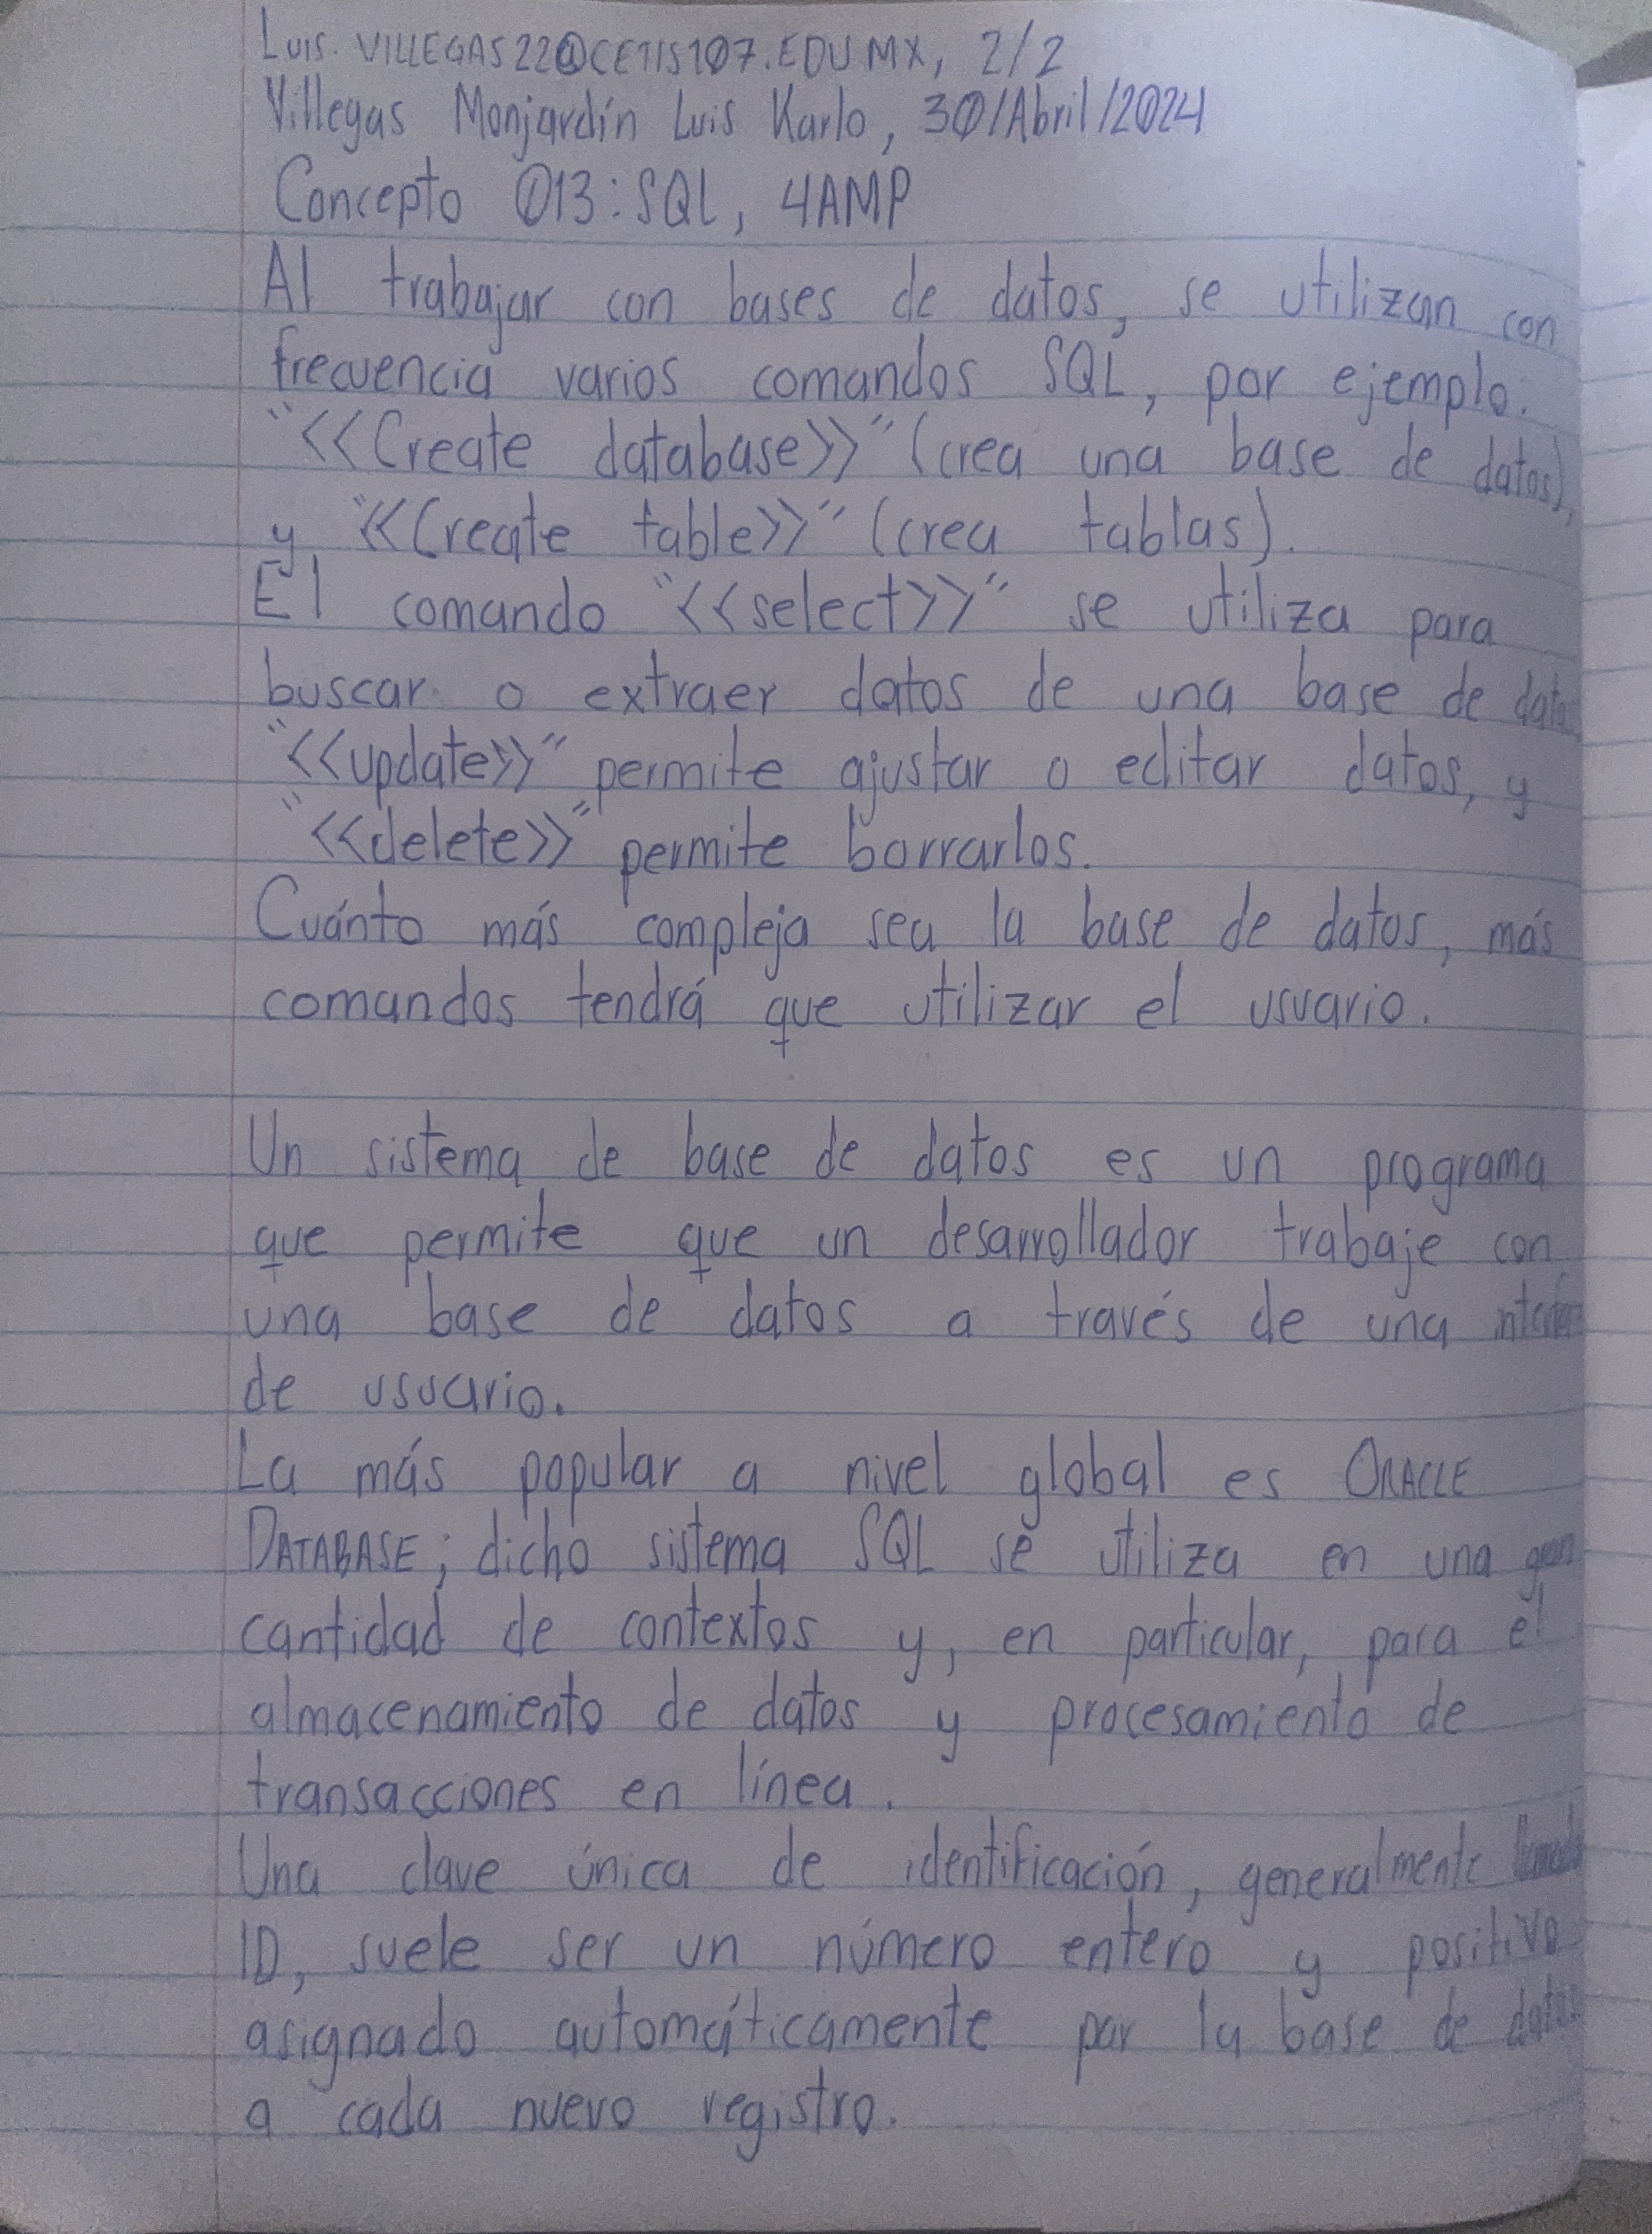 Luis.VILLEGAS22@CETIS107.EDU.MX, 2/2
Villegas Monjardín Luis Karlo, 30/Abril/2024
Concepto 013: SQL, 4AMP
Al trabajar con bases de datos, se utilizan con
frecuencia varios comandos SQL, por ejemplo:
"<<Create database>>" (crea una base de datos),
y "<<Create table>>" (crea tablas).
El comando "<<select>>" se utiliza para
buscar o extraer datos de una base de datos
"<<update>>" permite ajustar o editar datos, y
"<<delete>>" permite borrarlos.
Cuánto más compleja sea la base de datos, más
comandos tendrá que utilizar el usuario.
Un sistema de base de datos es un programa
que permite que un desarrollador trabaje con
una base de datos a través de una
de usuario.
La más popular a nivel global es ORACLE
DATABASE; dicho sistema SQL se utiliza en una gran
cantidad de contextos y, en particular, para el
almacenamiento de datos y procesamiento de
transacciones en línea.
Una clave única de identificación, generalmente
ID, suele ser un número entero y positivo
asignado automáticamente por la base de datos
a cada nuevo registro.